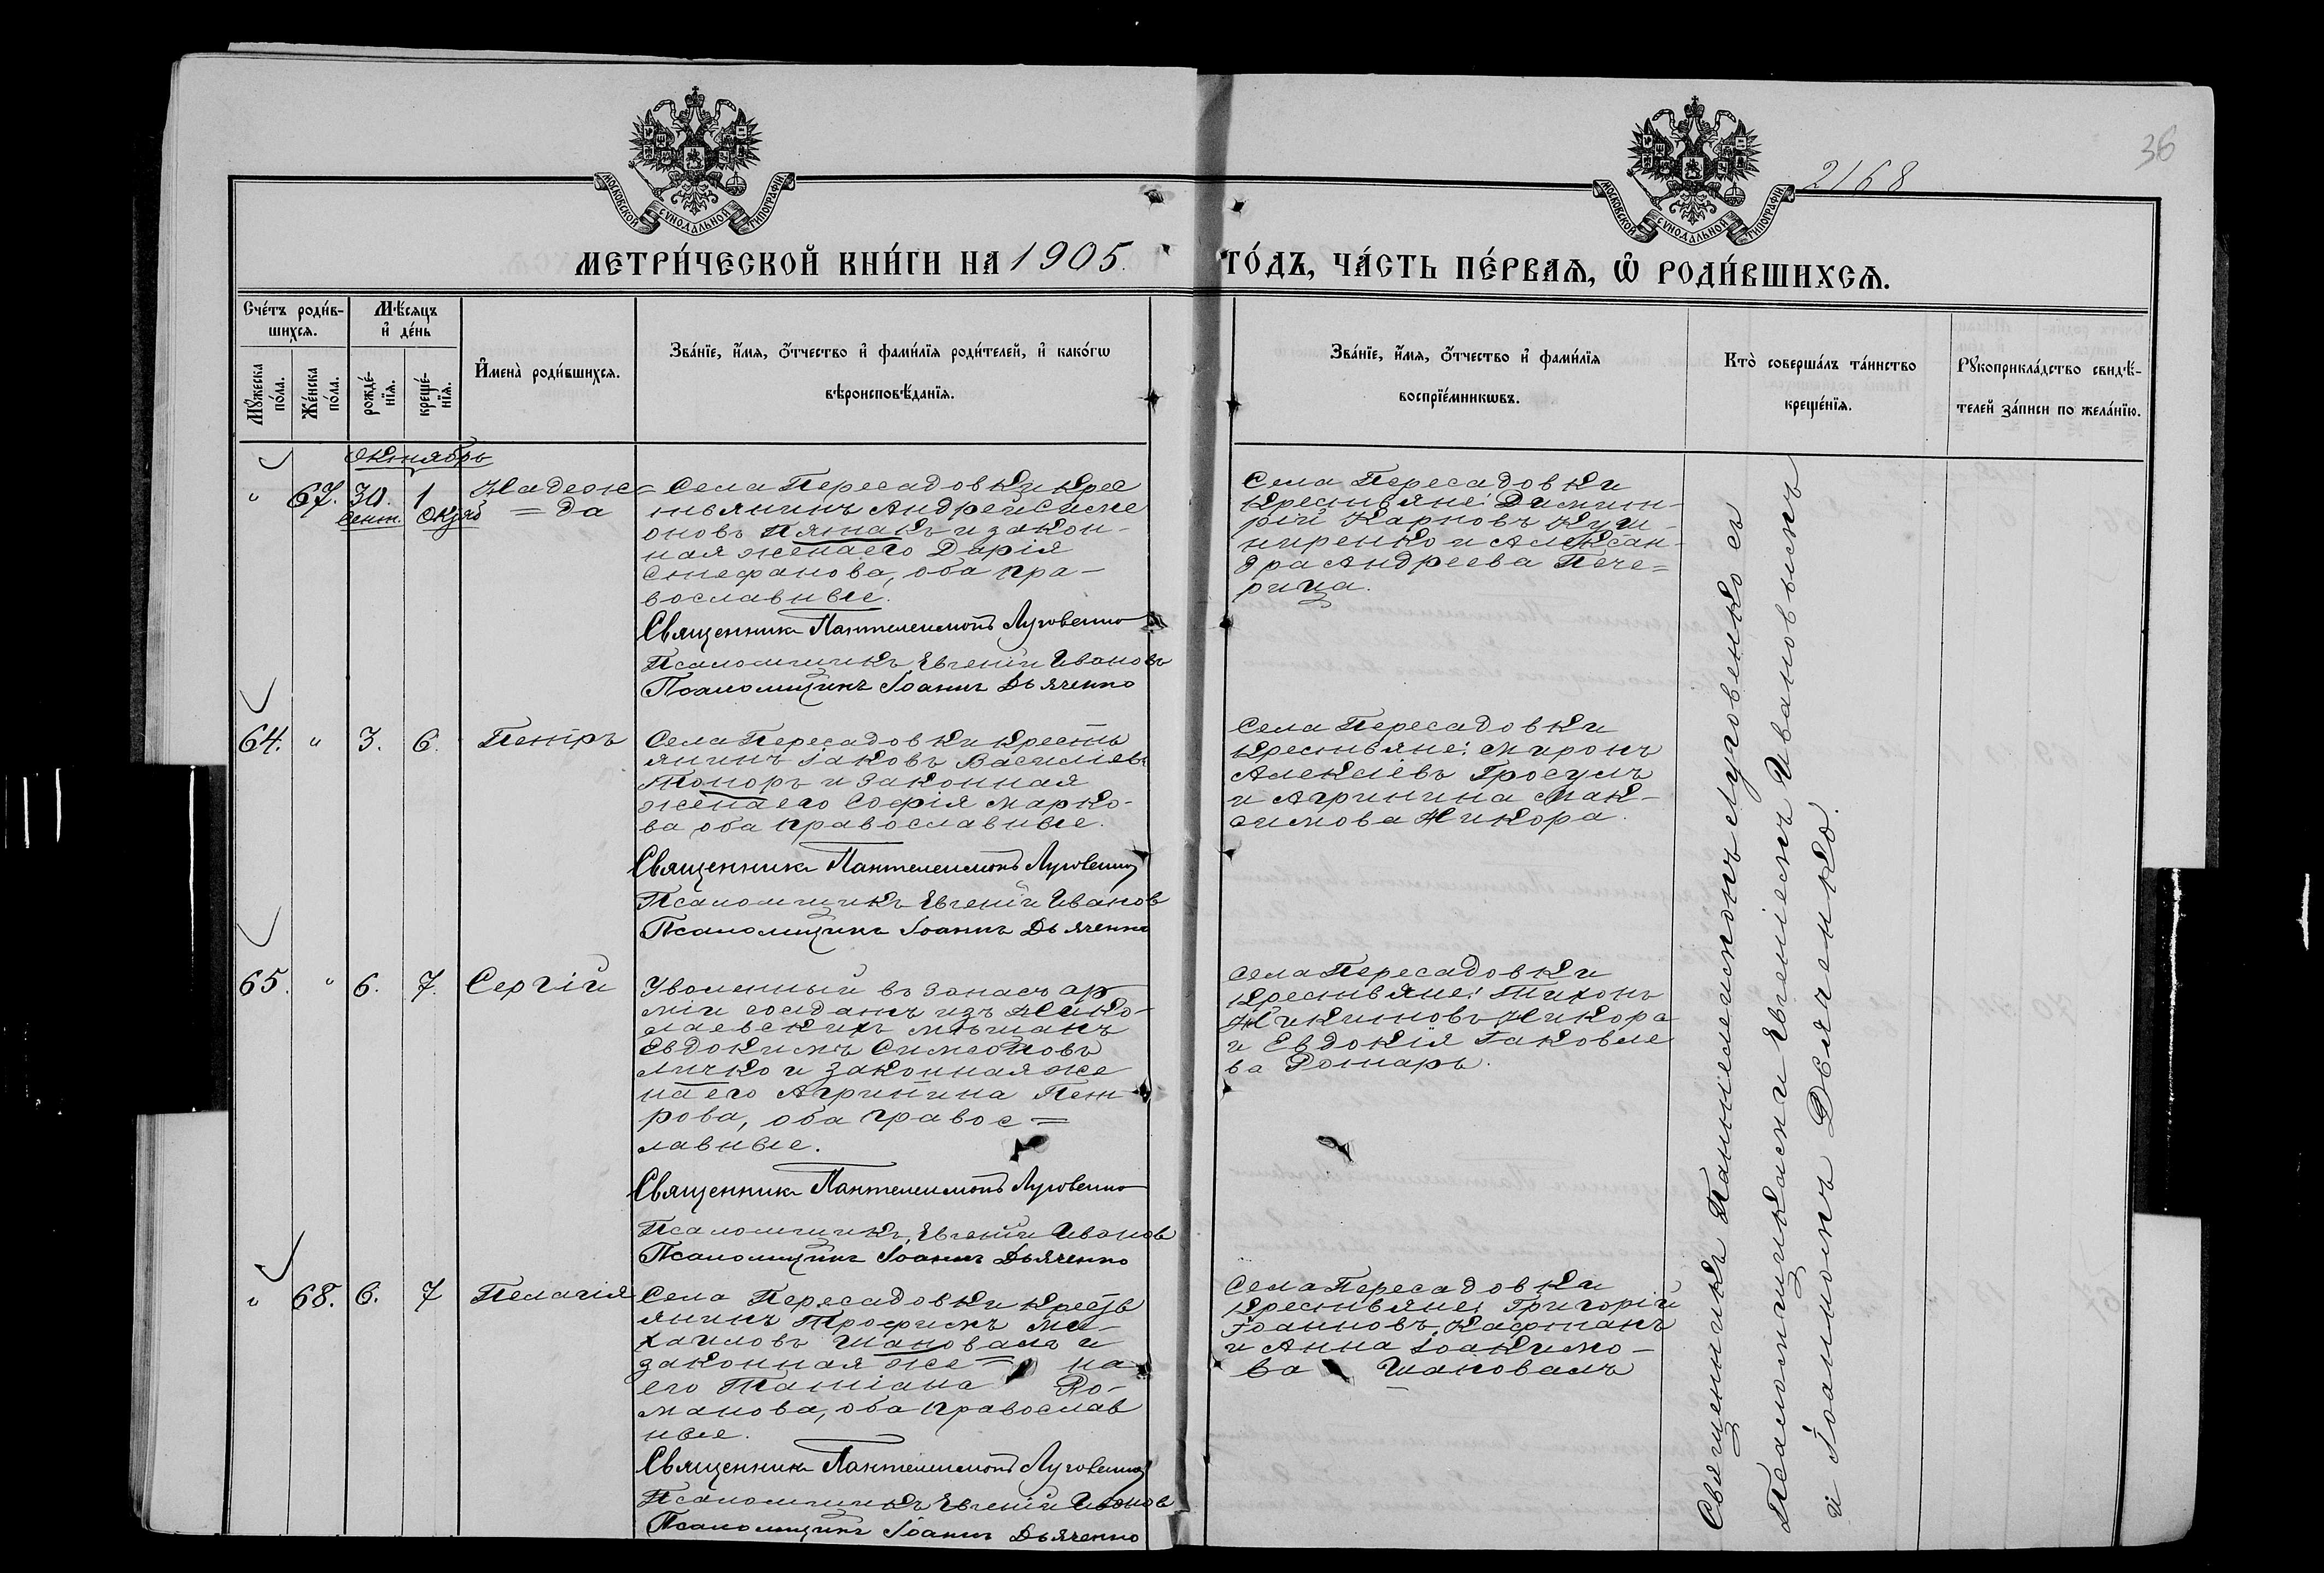 36
2168
МОСКОВСКОЙ СУНОДАЛЬНОЙ ТИПОГРАФІИ
МОСКОВСКОЙ СУНОДАЛЬНОЙ ТИПОГРАФІИ
МЕТРИ́ЧЕСКОЙ КНИ́ГИ НА 1905.
ГО́ДЪ, ЧА́СТЬ ПЕ́РВАѦ, Ѡ҆ РОДИ́ВШИХСѦ.
Сче́тъ роди́в-
шихсѧ.
Мѣ́сѧцъ
и҆ де́нь
Мꙋ́жеска
по́ла.
Же́нска
по́ла.
рожде́-
нїѧ.
креще́-
нїѧ.
И҆мена̀ роди́вшихсѧ.
Зва́нїе, и҆́мѧ, ѻ҆́тчество и҆ фами́лїѧ роди́телей, и҆ како́гѡ
вѣроисповѣ́данїѧ.
Зва́нїе, и҆́мѧ, ѻ҆́тчество и҆ фами́лїѧ
воспрїе́мникѡвъ.
Кто̀ соверша́лъ та́инство
креще́нїѧ.
Рꙋкоприкла́дство свидѣ́-
телей за́писи по жела́нїю.
Октябрь
" 67. 30. Сент. 1 Октяб
Надеж=
=да
Села Пересадовки крес
тьянинъ Андрей Симе
оновъ Пятакъ и закон-
ная жена его Дарія
Стефанова, оба пра-
вославные.
Священникъ Пантелеимонъ Луговенко
Псаломщикъ Евгеній Ивановъ
Псаломщикъ Іоаннъ Дьяченко
Села Пересадовки
крестьяне: Димит-
рій Карповъ Куш-
ниренко и Алексан-
дра Андреева Пече=
рица.
64. " 3. 6. Петръ
Села Пересадовки кресть
янинъ Іаковъ Василіевъ
Топоръ и законная
жена его Софія Марко-
ва, оба православные.
Священникъ Пантелеимонъ Луговенко
Псаломщикъ Евгеній Иванов
Псаломщикъ Іоаннъ Дьяченко
Села Пересадовки
крестьяне: Миронъ
Алексіевъ Гросулъ
и Агрипина Мак-
симова Никора.
65. " 6. 7. Сергій
Уволенный въ запасъ ар
міи солдатъ изъ Нико-
лаевскихъ мѣщанъ
Евдокимъ Симеоновъ
Личко и законная же
на его Агрипина Пет
рова, оба правос=
лавные.
Священникъ Пантелеимонъ Луговенко
Псаломщикъ Евгеній Иванов
Псаломщикъ Іоаннъ Дьяченко
Села Пересадовки
крестьяне: Тихонъ
Никитовъ Никора
и Евдокія Іаковле
ва Ротарь.
" 68. 6. 7 Пелагія
Села Пересадовки крест
янинъ Трофимъ Ми-
хаиловъ Шаповалъ и
законная же= на
его Татіана Ро-
манова, оба православ
ные.
Священникъ Пантелеимонъ Луговенко
Псаломщикъ Евгеній Иванов
Псаломщикъ Іоаннъ Дьяченко
Села Пересадовки
крестьяне: Григорій
Іоанновъ Кафтанъ
и Анна Іоакимо-
ва Шаповалъ
Священникъ Пантелеимонъ Луговенко съ
Псаломщиками Евгеніемъ Ивановымъ
и Іоанномъ Дьяченко.